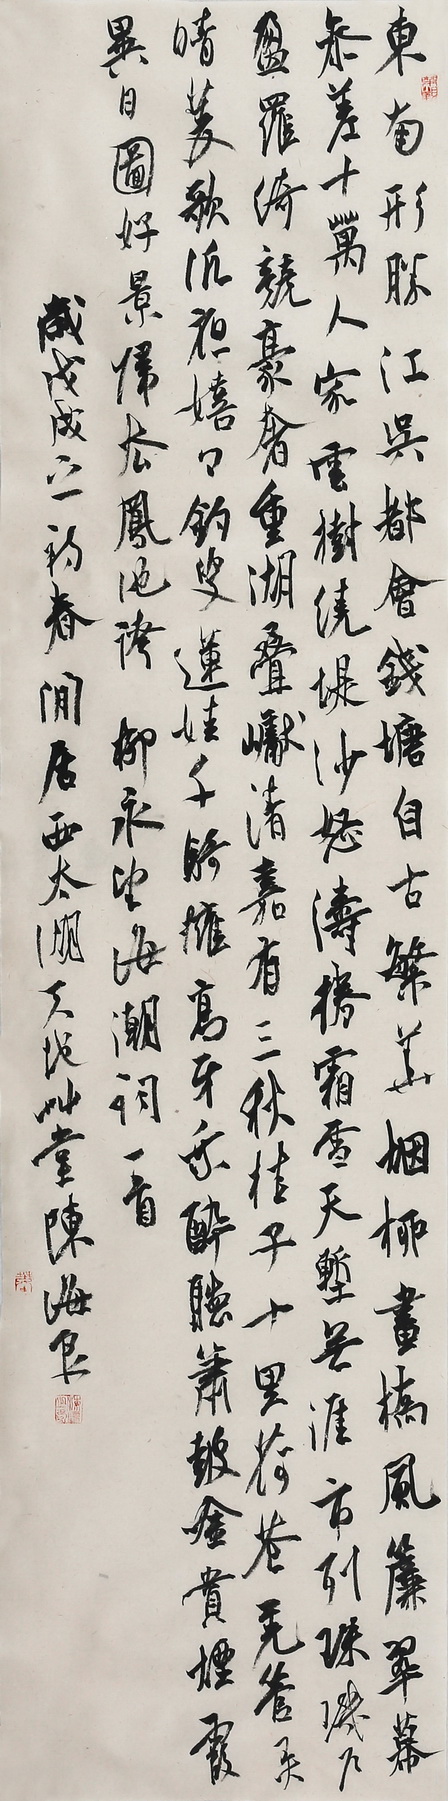 東南形勝江吳都會錢塘自古繁華烟柳畫橋風簾翠幕
參差十萬人家雲樹繞堤沙怒濤捲霜雪天塹無涯市列珠璣戶
盈羅綺競豪奢重湖疊巘清嘉有三秋桂子十里荷花羌管弄
晴菱歌泛夜嬉々釣叟蓮娃千騎擁高牙乘醉聽簫鼓吟賞煙霞
異日圖好景歸去鳳池誇 柳永望海潮詞一首
歲戊戌之初春閒居西太湖天地艸堂陳海良